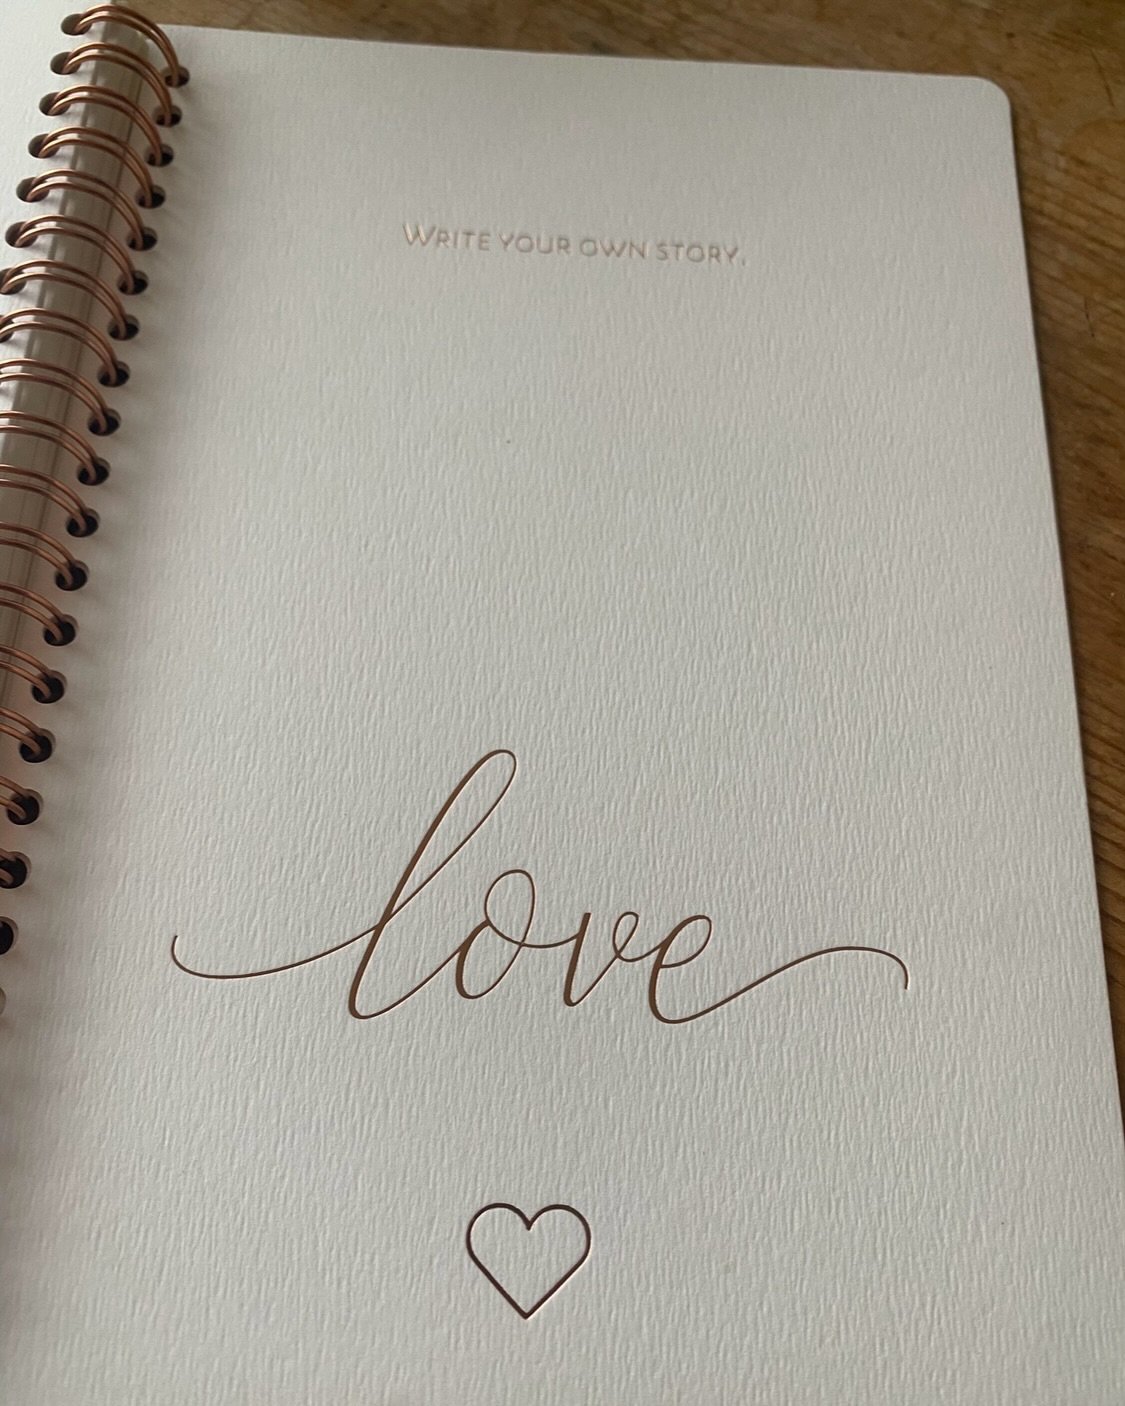 WRITE YOUR OWN STORY.
love